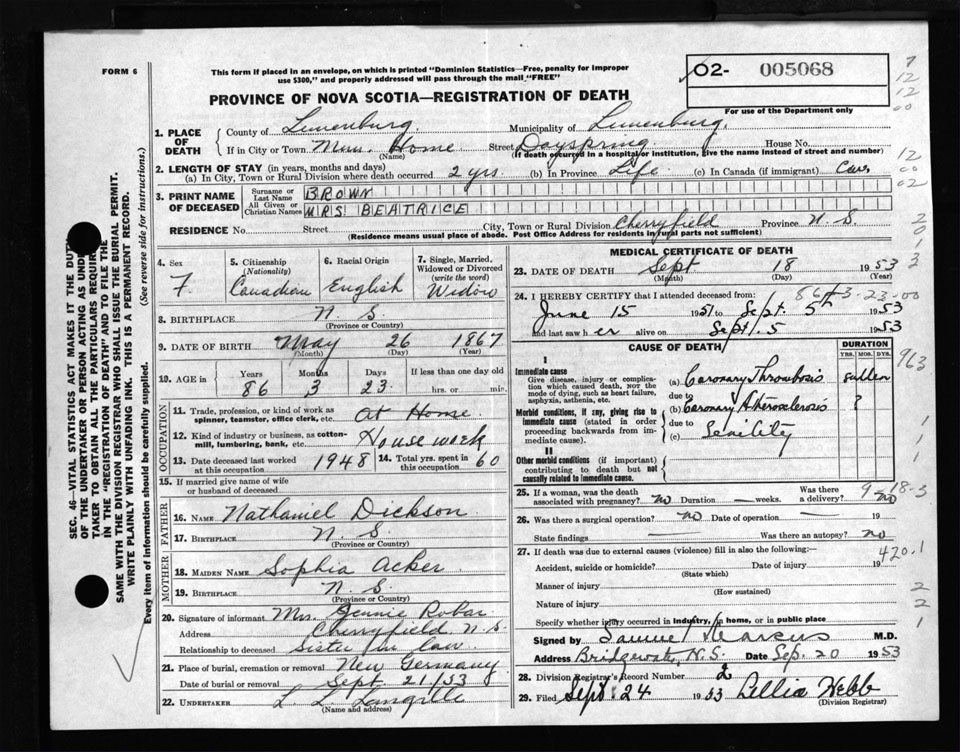 FORM 6
This form if placed in an envelope, on which is printed "Dominion Statistics—Free, penalty for improper
use $300," and properly addressed will pass through the mail "FREE"
O2- 005068
For use of the Department only
PROVINCE OF NOVA SCOTIA—REGISTRATION OF DEATH
SEC. 46—VITAL STATISTICS ACT MAKES IT THE DUTY
OF THE UNDERTAKER OR PERSON ACTING AS UNDER
TAKER TO OBTAIN ALL THE PARTICULARS REQUIR
IN THE "REGISTRATION OF DEATH" AND TO FILE THE
SAME WITH THE DIVISION REGISTRAR WHO SHALL ISSUE THE BURIAL PERMIT.
WRITE PLAINLY WITH UNFADING INK. THIS IS A PERMANENT RECORD.
Every item of information should be carefully supplied. (See reverse side for instructions.)
1. PLACE OF DEATH
County of Lunenburg Municipality of Lunenburg
If in City or Town Mun. Home Street Dayspring House No.
(Name) (If death occurred in a hospital or institution, give the name instead of street and number)
2. LENGTH OF STAY (in years, months and days)
(a) In City, Town or Rural Division where death occurred 2 yrs. (b) In Province Life (c) In Canada (if immigrant)
3. PRINT NAME OF DECEASED
Surname or Last Name BROWN
All Given or Christian Names MRS BEATRICE
RESIDENCE No. Street City, Town or Rural Division Cherryfield Province N. S.
(Residence means usual place of abode. Post Office Address for residents in rural parts not sufficient)
4. Sex F.
5. Citizenship (Nationality) Canadian
6. Racial Origin English
7. Single, Married, Widowed or Divorced (write the word) Widow
8. BIRTHPLACE N. S.
(Province or Country)
9. DATE OF BIRTH May 26 1867
(Month) (Day) (Year)
10. AGE in Years Months Days If less than one day old
86 3 23 hrs. or min.
OCCUPATION
11. Trade, profession, or kind of work as spinner, teamster, office clerk, etc. At Home
12. Kind of industry or business, as cotton-mill, lumbering, bank, etc. Housework
13. Date deceased last worked at this occupation 1948 14. Total yrs. spent in this occupation 60
15. If married give name of wife or husband of deceased
FATHER
16. NAME Nathaniel Dickson
17. BIRTHPLACE N. S
(Province or Country)
MOTHER
18. MAIDEN NAME Sophia Acker
19. BIRTHPLACE N. S.
(Province or Country)
20. Signature of informant Mrs. Jennie Robar
Address Cherryfield N. S.
Relationship to deceased Sister in law
21. Place of burial, cremation or removal New Germany
Date of burial or removal Sept. 21/53
22. UNDERTAKER L. L. Langille
(Name and address)
MEDICAL CERTIFICATE OF DEATH
23. DATE OF DEATH Sept 18 1953
(Month) (Day) (Year)
86-3-23-00
24. I HEREBY CERTIFY that I attended deceased from:
June 15 1951 to Sept. 5th 1953
and last saw her alive on Sept. 5 1953
CAUSE OF DEATH
DURATION
YRS. MOS. DYS.
I
Immediate cause
Give disease, injury or complication which caused death, not the mode of dying, such as heart failure, asphyxia, asthenia, etc.
(a) Coronary Thrombosis sudden
due to
Morbid conditions, if any, giving rise to immediate cause (stated in order proceeding backwards from immediate cause).
(b) Coronary Atherosclerosis ?
due to
(c) Senility
II
Other morbid conditions (if important) contributing to death but not causally related to immediate cause.
25. If a woman, was the death associated with pregnancy? no Duration — weeks. Was there a delivery? no
9-18-3
26. Was there a surgical operation? no Date of operation — 19
State findings — Was there an autopsy? no
27. If death was due to external causes (violence) fill in also the following:—
420.1
Accident, suicide or homicide? Date of injury 19
(State which)
Manner of injury
(How sustained)
Nature of injury
Specify whether injury occurred in industry, in home, or in public place
Signed by Samuel Marcus M.D.
Address Bridgewater, N.S. Date Sep. 20 1953
28. Division Registrar's Record Number 2
29. Filed Sept 24 1953 Lillia Webb
(Division Registrar)
7
12
12
00
12
00
02
2
0
1
3
3
963
1
1
1
2
2
1